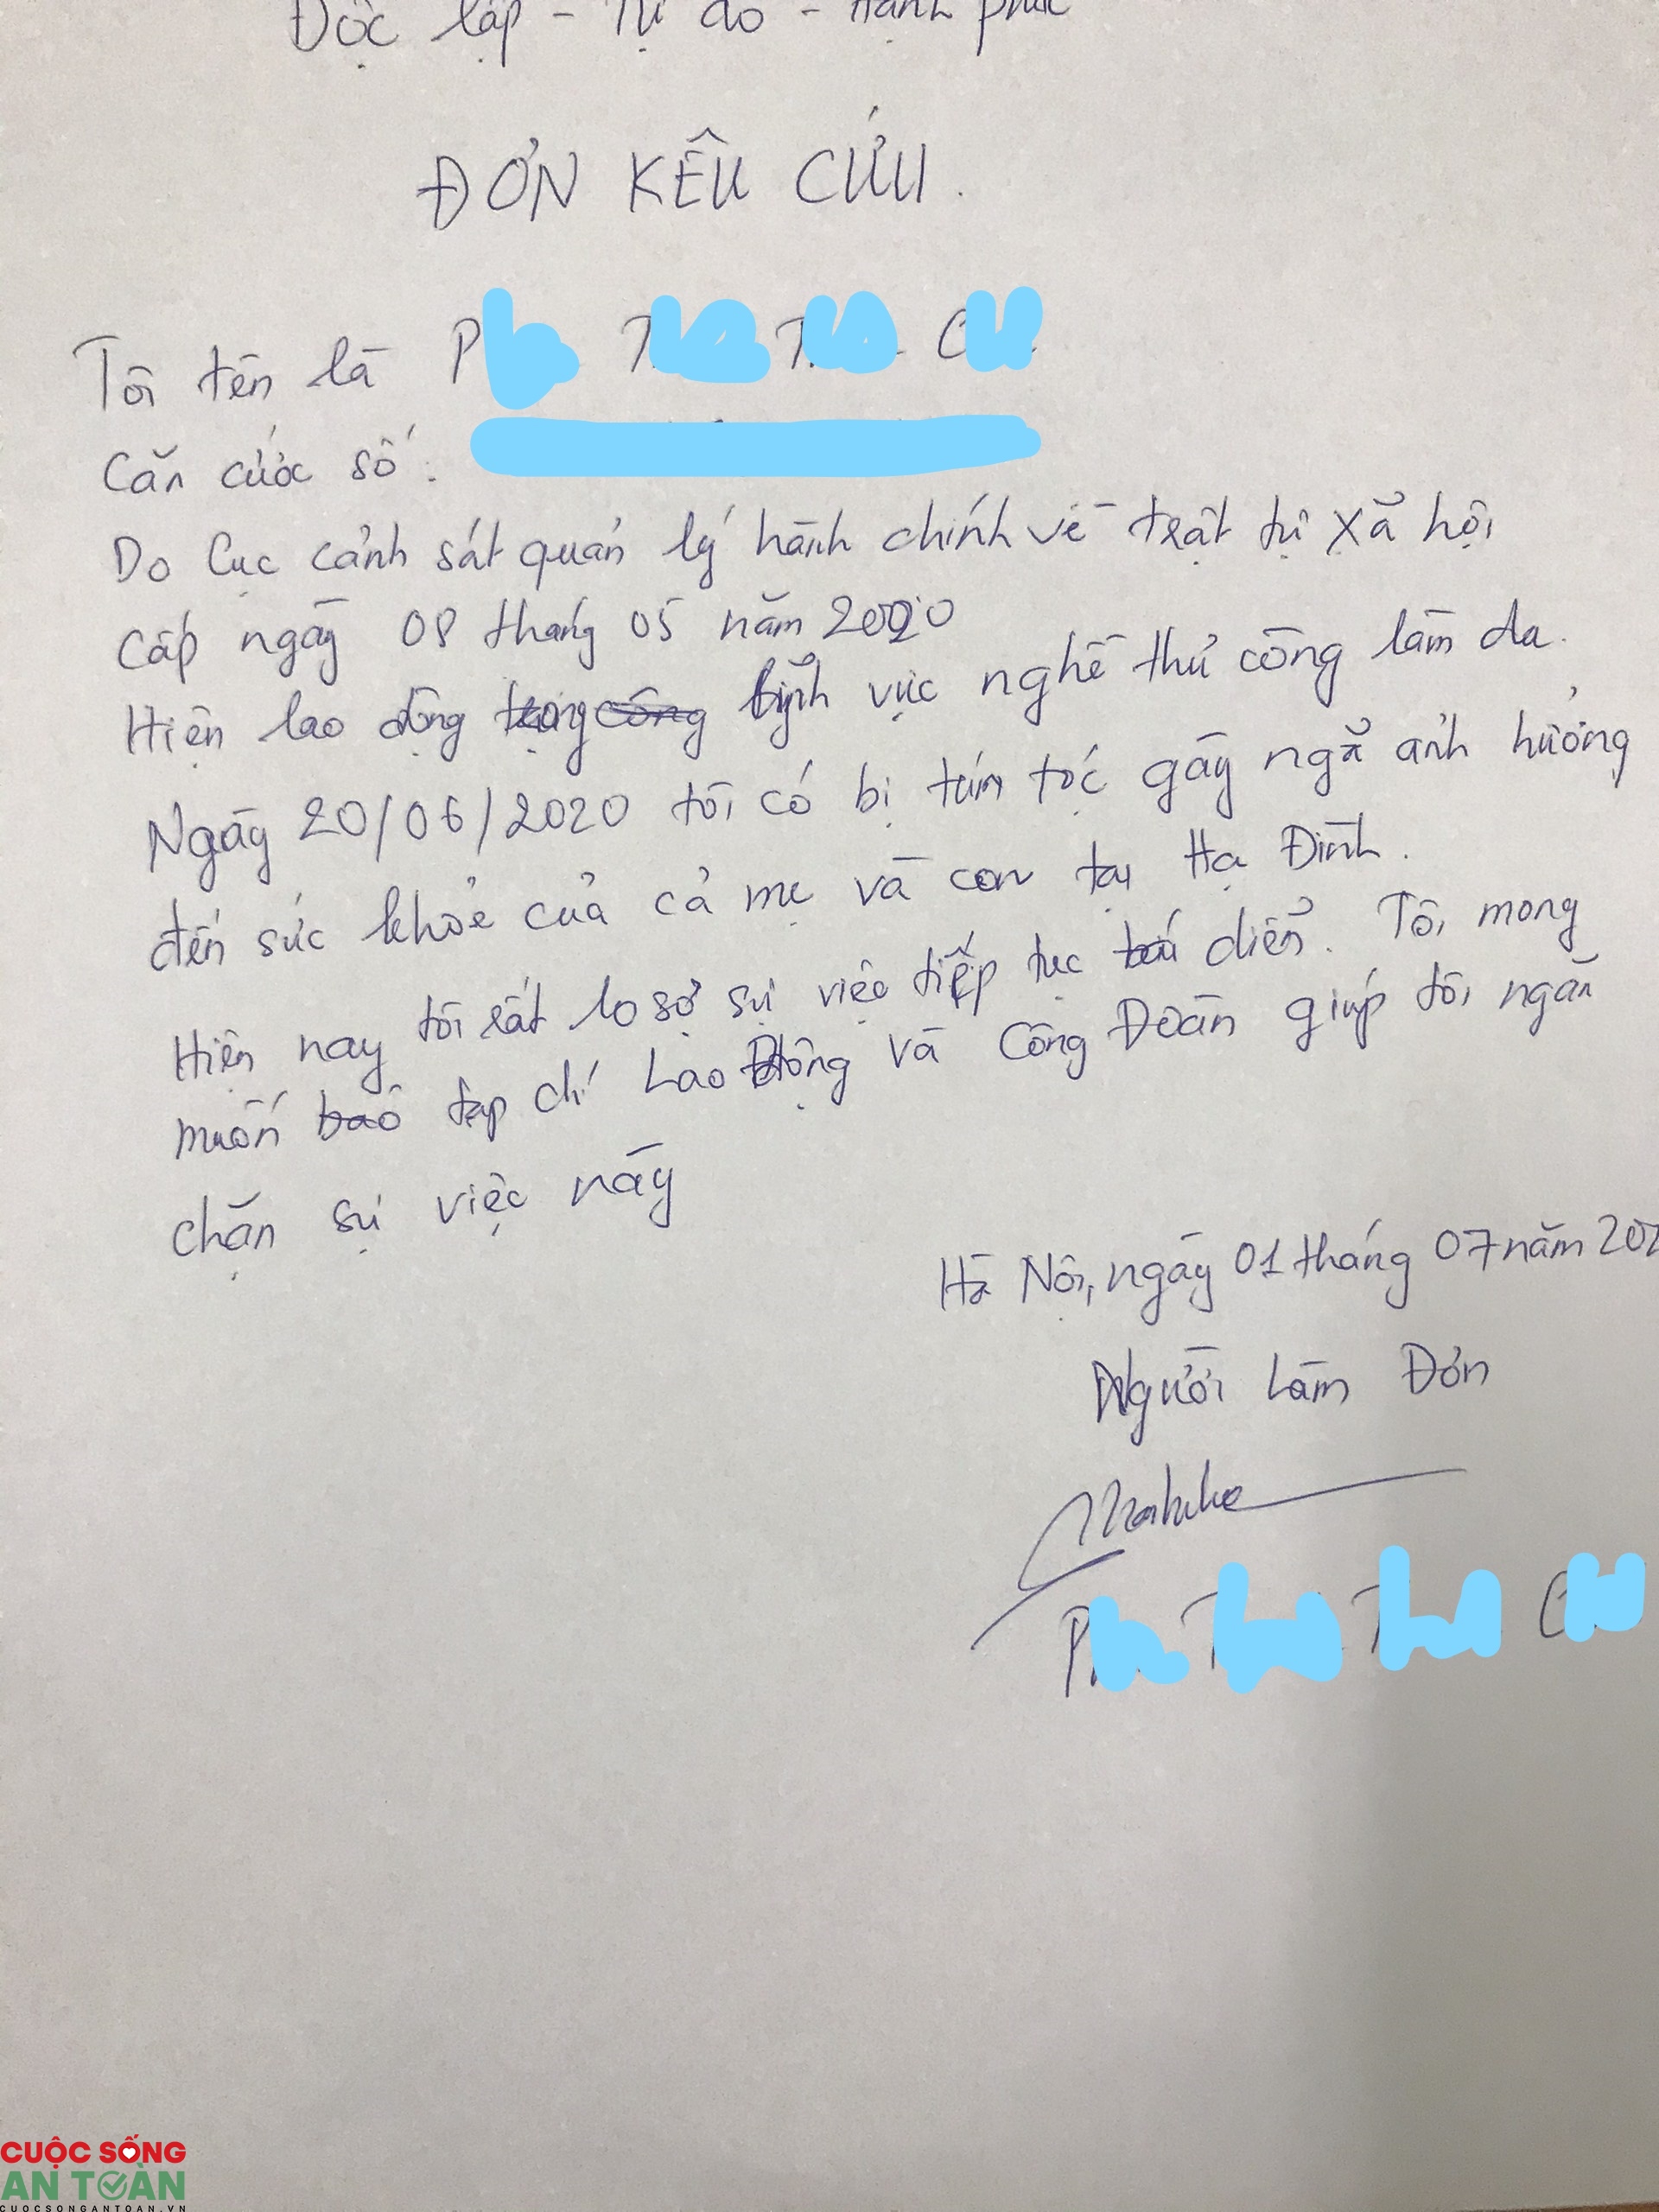 Độc lập - Tự do - Hạnh phúc
ĐƠN KÊU CỨU.
Tôi tên là P T T C
Căn cước số:
Do Cục cảnh sát quản lý hành chính về trật tự xã hội
Cấp ngày 08 tháng 05 năm 2020
Hiện lao động lĩnh vực nghề thủ công làm da.
Ngày 20/06/2020 tôi có bị túm tóc gây ngã ảnh hưởng
đến sức khỏe của cả mẹ và con tại Hạ Đình.
Hiện nay tôi rất lo sợ sự việc tiếp tục diễn. Tôi mong
muốn tạp chí Lao Động và Công Đoàn giúp tôi ngăn
chặn sự việc này
Hà Nội, ngày 01 tháng 07 năm 202
Người Làm Đơn
P T T C
CUỘC SỐNG
AN TOÀN
CUOCSONGANTOAN.VN